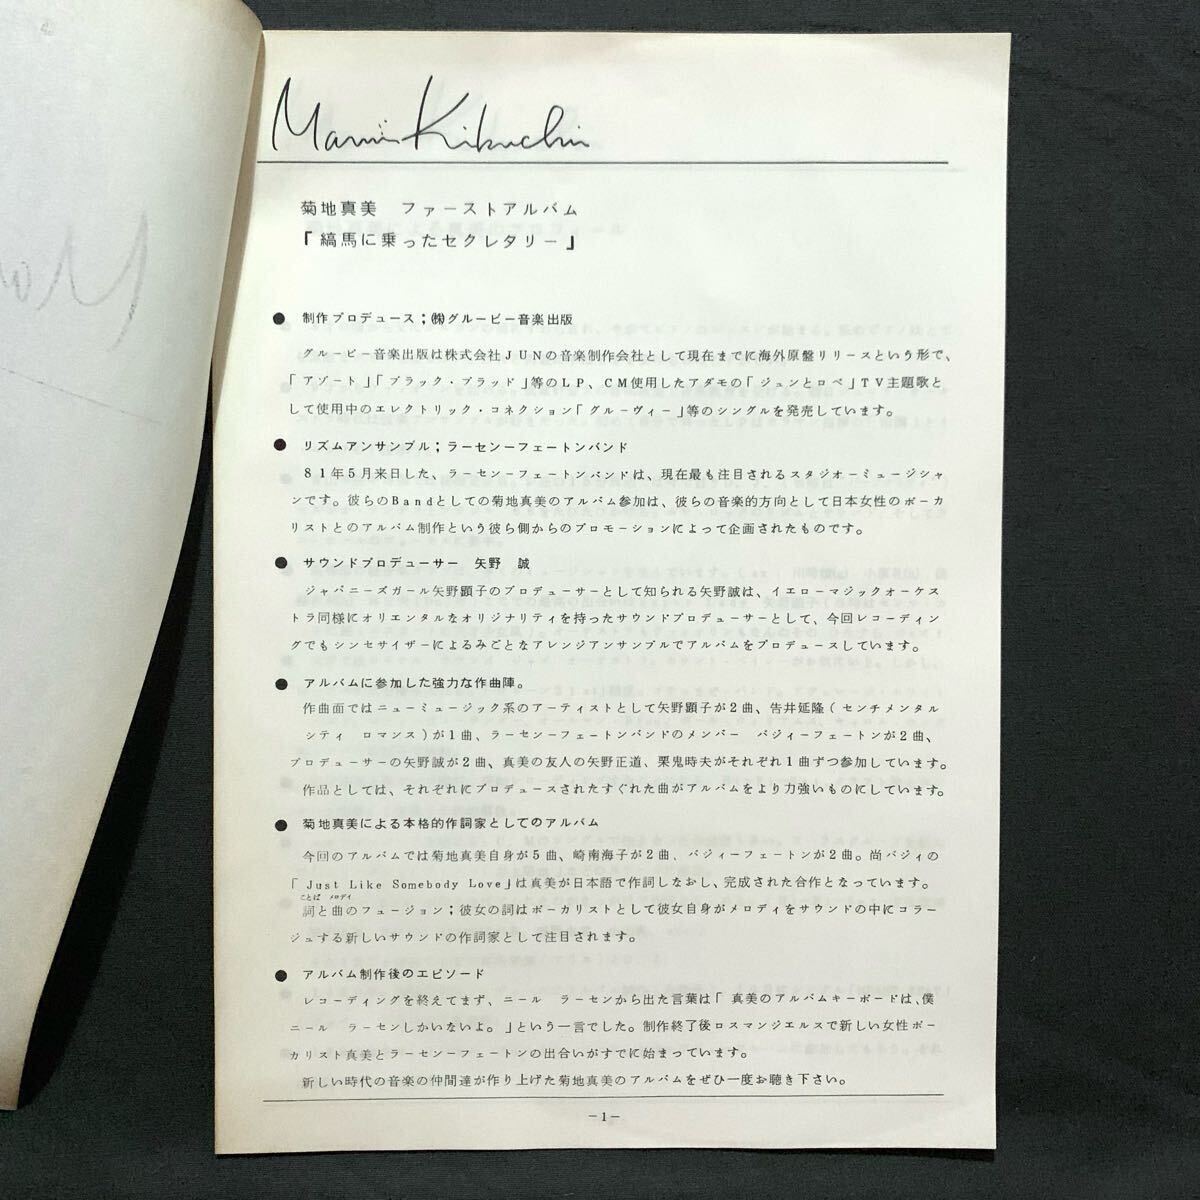 Mami Kikuchi
菊地真美　ファーストアルバム
「縞馬に乗ったセクレタリー」
● 制作プロデュース；㈱グルービー音楽出版
グルービー音楽出版は株式会社JUNの音楽制作会社として現在までに海外原盤リリースという形で、
「アゾート」「ブラック・ブラッド」等のLP、CM使用したアダモの「ジュンとロペ」TV主題歌と
して使用中のエレクトリック・コネクション「グルーヴィー」等のシングルを発売しています。
● リズムアンサンブル；ラーセンーフェートンバンド
81年5月来日した、ラーセンーフェートンバンドは、現在最も注目されるスタジオーミュージシャ
ンです。彼らのBandとしての菊地真美のアルバム参加は、彼らの音楽的方向として日本女性のボーカ
リストとのアルバム制作という彼ら側からのプロモーションによって企画されたものです。
● サウンドプロデューサー　矢野　誠
ジャパニーズガール矢野顕子のプロデューサーとして知られる矢野誠は、イエローマジックオーケス
トラ同様にオリエンタルなオリジナリティを持ったサウンドプロデューサーとして、今回レコーディン
グでもシンセサイザーによるみごとなアレンジアンサンブルでアルバムをプロデュースしています。
● アルバムに参加した強力な作曲陣。
作曲面ではニューミュージック系のアーティストとして矢野顕子が2曲、告井延隆（センチメンタル
シティ　ロマンス）が1曲、ラーセンーフェートンバンドのメンバー　バジィーフェートンが2曲、
プロデューサーの矢野誠が2曲、真美の友人の矢野正道、栗鬼時夫がそれぞれ1曲ずつ参加しています。
作品としては、それぞれにプロデュースされたすぐれた曲がアルバムをより力強いものにしています。
● 菊地真美による本格的作詞家としてのアルバム
今回のアルバムでは菊地真美自身が5曲、崎南海子が2曲、バジィーフェートンが2曲。尚バジィの
「Just Like Somebody Love」は真美が日本語で作詞しなおし、完成された合作となっています。
ことば　メロデイ
詞と曲のフュージョン；彼女の詞はボーカリストとして彼女自身がメロディをサウンドの中にコラー
ジュする新しいサウンドの作詞家として注目されます。
● アルバム制作後のエピソード
レコーディングを終えてまず、ニール　ラーセンから出た言葉は「真美のアルバムキーボードは、僕
ニール　ラーセンしかいないよ。」という一言でした。制作終了後ロスマンジエルスで新しい女性ボー
カリスト真美とラーセンーフェートンの出合いがすでに始まっています。
新しい時代の音楽の仲間達が作り上げた菊地真美のアルバムをぜひ一度お聴き下さい。
－1－